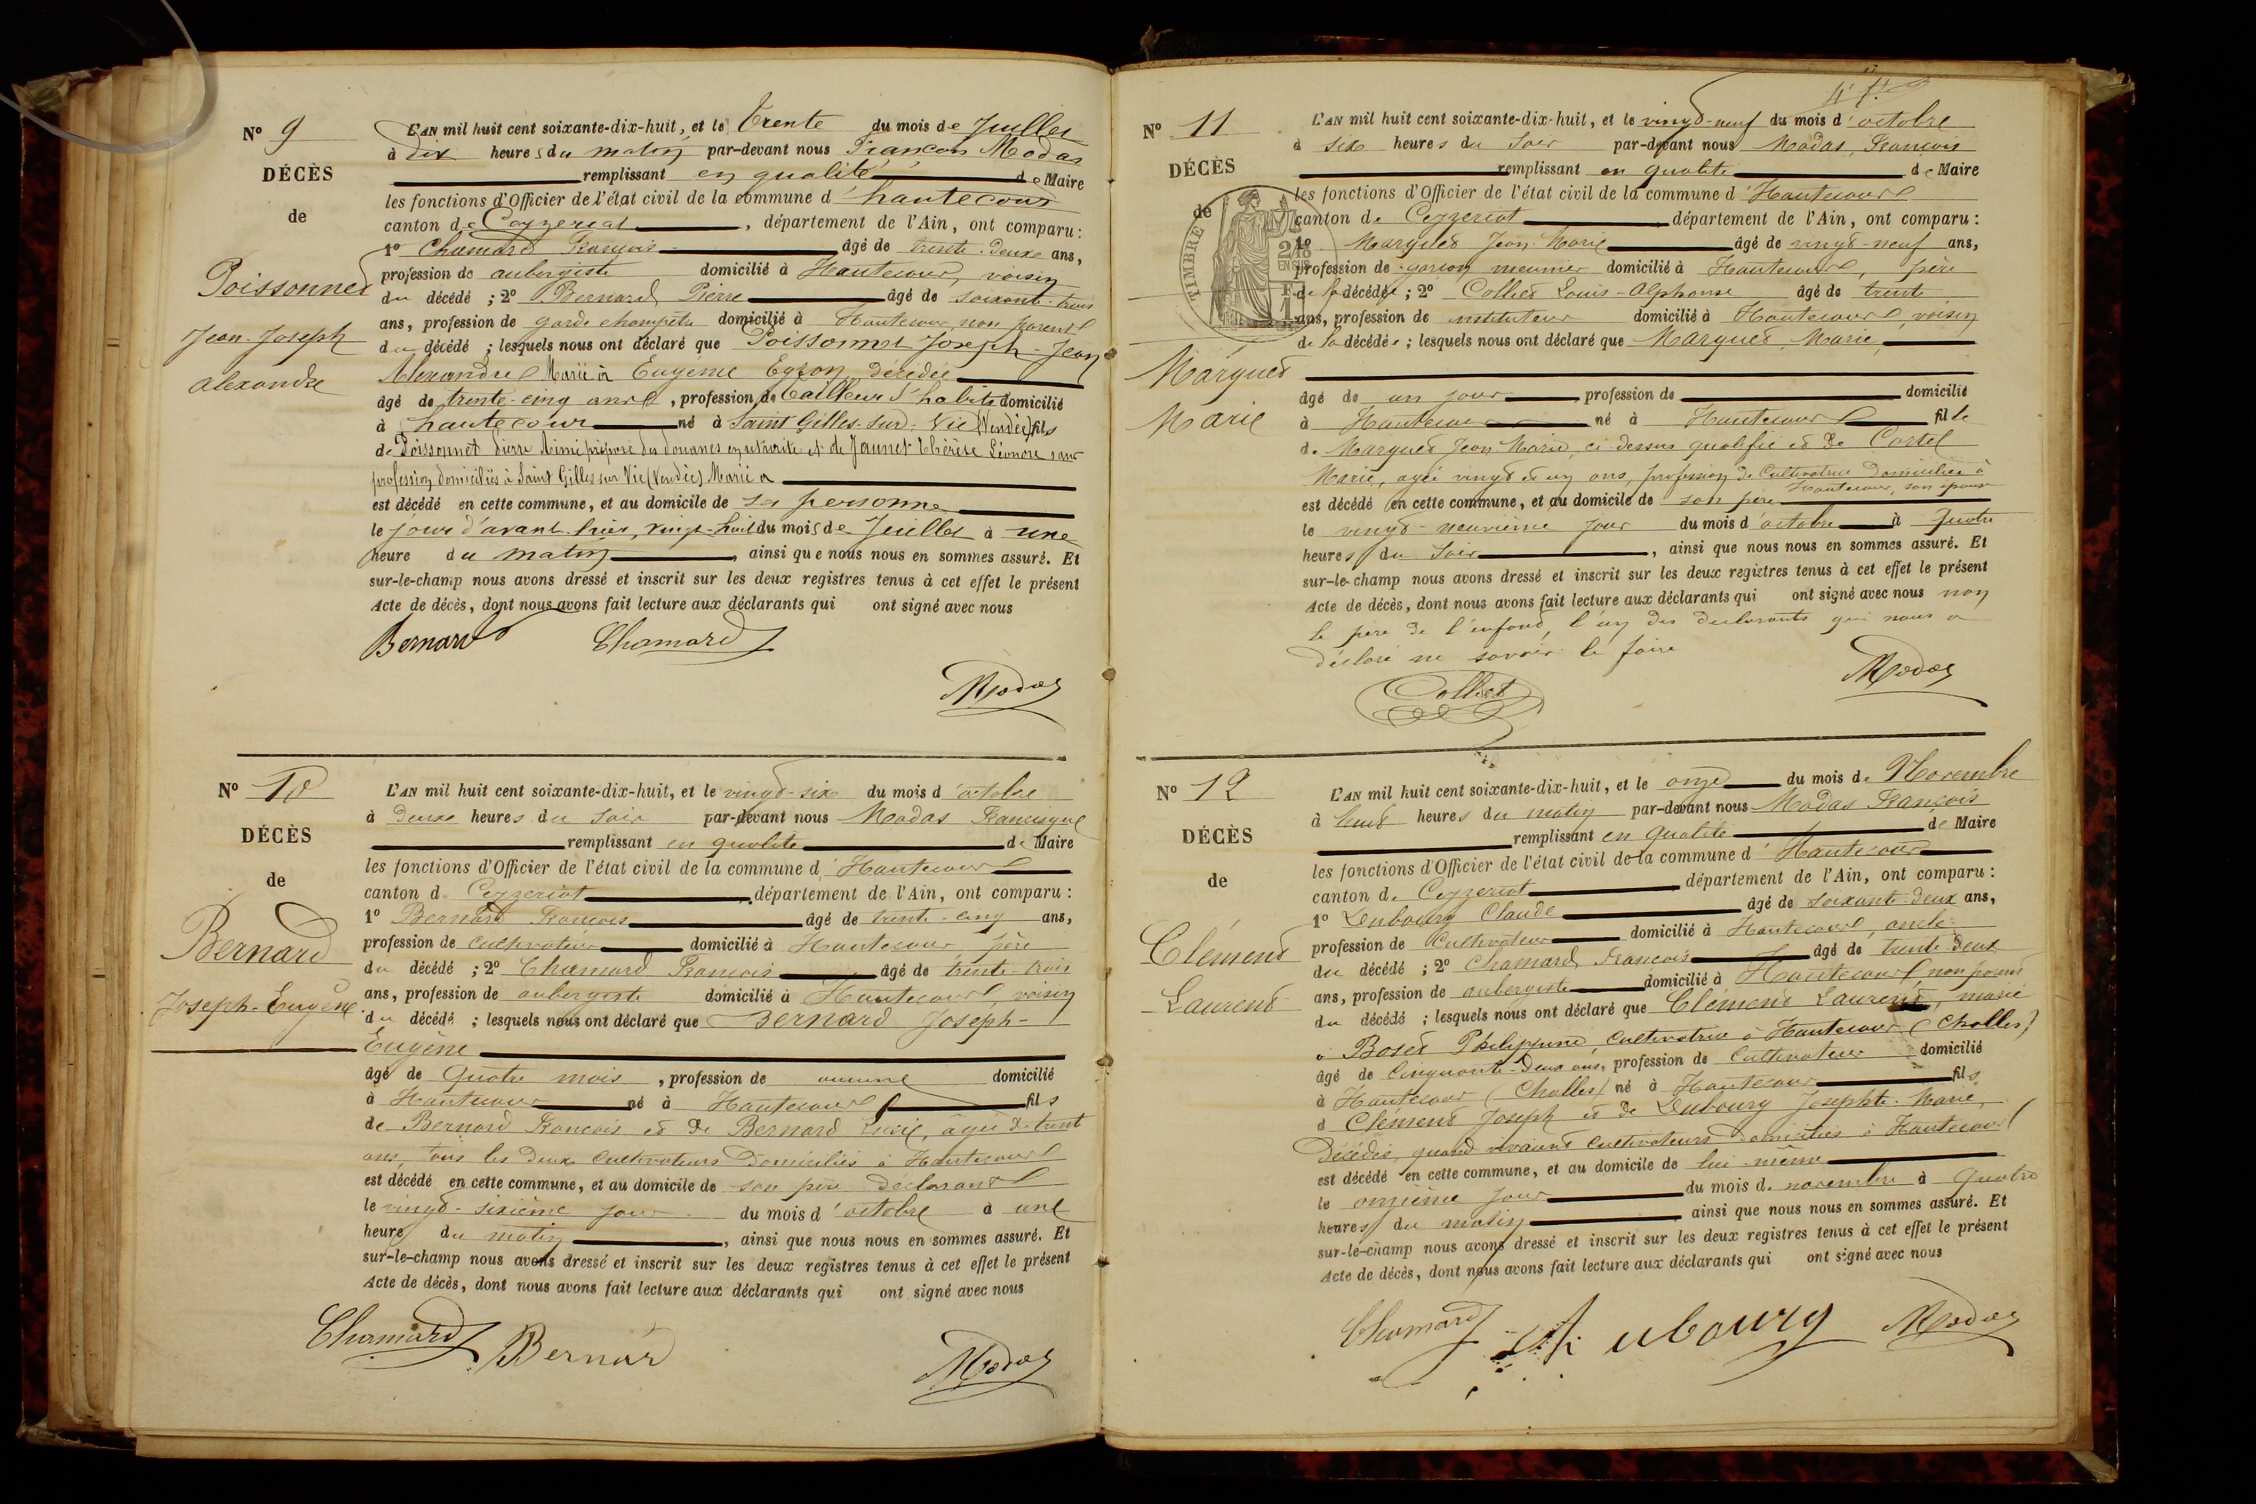 N° 9
DÉCÈS
de
Poissonnet
Jean-Joseph
Alexandre
L'AN mil huit cent soixante-dix-huit, et le Trente du mois de Juillet
à dix heures du matin par-devant nous François Modas
remplissant en qualité de Maire
les fonctions d'Officier de l'état civil de la commune d'hautecour
canton de Ceyzeriat, département de l'Ain, ont comparu :
1° Chamard François âgé de trente-deux ans,
profession de aubergiste domicilié à Hautecour, voisin
du décédé ; 2° Bernard Pierre âgé de soixante-trois
ans, profession de garde champêtre domicilié à Hautecour non parent
du décédé ; lesquels nous ont déclaré que Poissonnet Joseph-Jean
Alexandre Marié à Eugénie décédée
âgé de trente-cinq ans, profession de tailleur d'habits domicilié
à hautecour né à Saint Gilles-sur-Vie (Vendée) fils
de Poissonnet Pierre Aimé préposé des douanes en retraite et de Jaunet Thérèse Léonore sans
profession domiciliés à Saint Gilles sur Vie (Vendée) Marié a
est décédé en cette commune, et au domicile de sa personne
le jour d'avant hier, vingt-huit du mois de Juillet à une
heure du matin, ainsi que nous nous en sommes assuré. Et
sur-le-champ nous avons dressé et inscrit sur les deux registres tenus à cet effet le présent
Acte de décès, dont nous avons fait lecture aux déclarants qui ont signé avec nous
Bernard Chamard
Modas
N° 10
DÉCÈS
de
Bernard
Joseph-Eugène
L'AN mil huit cent soixante-dix-huit, et le vingt-six du mois d'octobre
à deux heures du soir par-devant nous Modas Francisque
remplissant en qualité de Maire
les fonctions d'Officier de l'état civil de la commune d'Hautecour
canton de Ceyzeriat, département de l'Ain, ont comparu :
1° Bernard François âgé de trente-cinq ans,
profession de cultivateur domicilié à Hautecour père
du décédé ; 2° Chamard François âgé de trente-trois
ans, profession de aubergiste domicilié à Hautecour, voisin
du décédé ; lesquels nous ont déclaré que Bernard Joseph-
Eugène
âgé de quatre mois, profession de aucune domicilié
à Hautecour né à Hautecour fils
de Bernard François et de Bernard Lucie, âgée de trente
ans, tous les deux cultivateurs domiciliés à Hautecour
est décédé en cette commune, et au domicile de son père déclarant
le vingt-sixième jour du mois d'octobre à une
heure du matin, ainsi que nous nous en sommes assuré. Et
sur-le-champ nous avons dressé et inscrit sur les deux registres tenus à cet effet le présent
Acte de décès, dont nous avons fait lecture aux déclarants qui ont signé avec nous
Chamard Bernard
Modas
N° 11
DÉCÈS
de
TIMBRE
EN SUS
Marguet
Marie
L'AN mil huit cent soixante-dix-huit, et le vingt-neuf du mois d'octobre
à six heures du soir par-devant nous Modas, François
remplissant en qualité de Maire
les fonctions d'Officier de l'état civil de la commune d'Hautecour
canton de Ceyzeriat département de l'Ain, ont comparu :
1° Marguet Jean-Marie âgé de vingt-neuf ans,
profession de garçon meunier domicilié à Hautecour, père
de la décédée ; 2° Colliet Louis-Alphonse âgé de trente
ans, profession de instituteur domicilié à Hautecour, voisin
de la décédée ; lesquels nous ont déclaré que Marguet, Marie,
âgé de un jour profession de domicilié
à Hautecour né à Hautecour fille
de Marguet Jean-Marie, ci-dessus qualifié et de Cortel
Marie, agée vingt et un ans, profession de cultivatrice domiciliée à
Hautecour, son épouse
est décédé en cette commune, et au domicile de son père
le vingt-neuvième jour du mois d'octobre à quatre
heures du soir, ainsi que nous nous en sommes assuré. Et
sur-le-champ nous avons dressé et inscrit sur les deux registres tenus à cet effet le présent
Acte de décès, dont nous avons fait lecture aux déclarants qui ont signé avec nous non
le père de l'enfant, l'un des déclarants qui nous a
déclaré ne savoir le faire
Colliet
Modas
N° 12
DÉCÈS
de
Clément
Laurent
L'AN mil huit cent soixante-dix-huit, et le onze du mois de Novembre
à huit heures du matin par-devant nous Modas François
remplissant en qualité de Maire
les fonctions d'Officier de l'état civil de la commune d'Hautecour
canton de Ceyzeriat département de l'Ain, ont comparu :
1° Dubourg Claude âgé de soixante-deux ans,
profession de cultivateur domicilié à Hautecour, oncle
du décédé ; 2° Chamard François âgé de trente-deux
ans, profession de aubergiste domicilié à Hautecour, non parent
du décédé ; lesquels nous ont déclaré que Clément Laurent, marié
à Boset Philippine, cultivatrice à Hautecour (Challes)
âgé de cinquante-deux ans, profession de cultivateur domicilié
à Hautecour (Challes) né à Hautecour fils
d Clément Joseph et de Dubourg Josephte-Marie,
décédés, quand vivaient cultivateurs domiciliés à Hautecour
est décédé en cette commune, et au domicile de lui-même
le onzième jour du mois de novembre à quatre
heures du matin, ainsi que nous nous en sommes assuré. Et
sur-le-champ nous avons dressé et inscrit sur les deux registres tenus à cet effet le présent
Acte de décès, dont nous avons fait lecture aux déclarants qui ont signé avec nous
Chamard Dubourg Modas